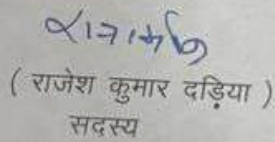 ( राजेश कुमार दड़िया )
सदस्य